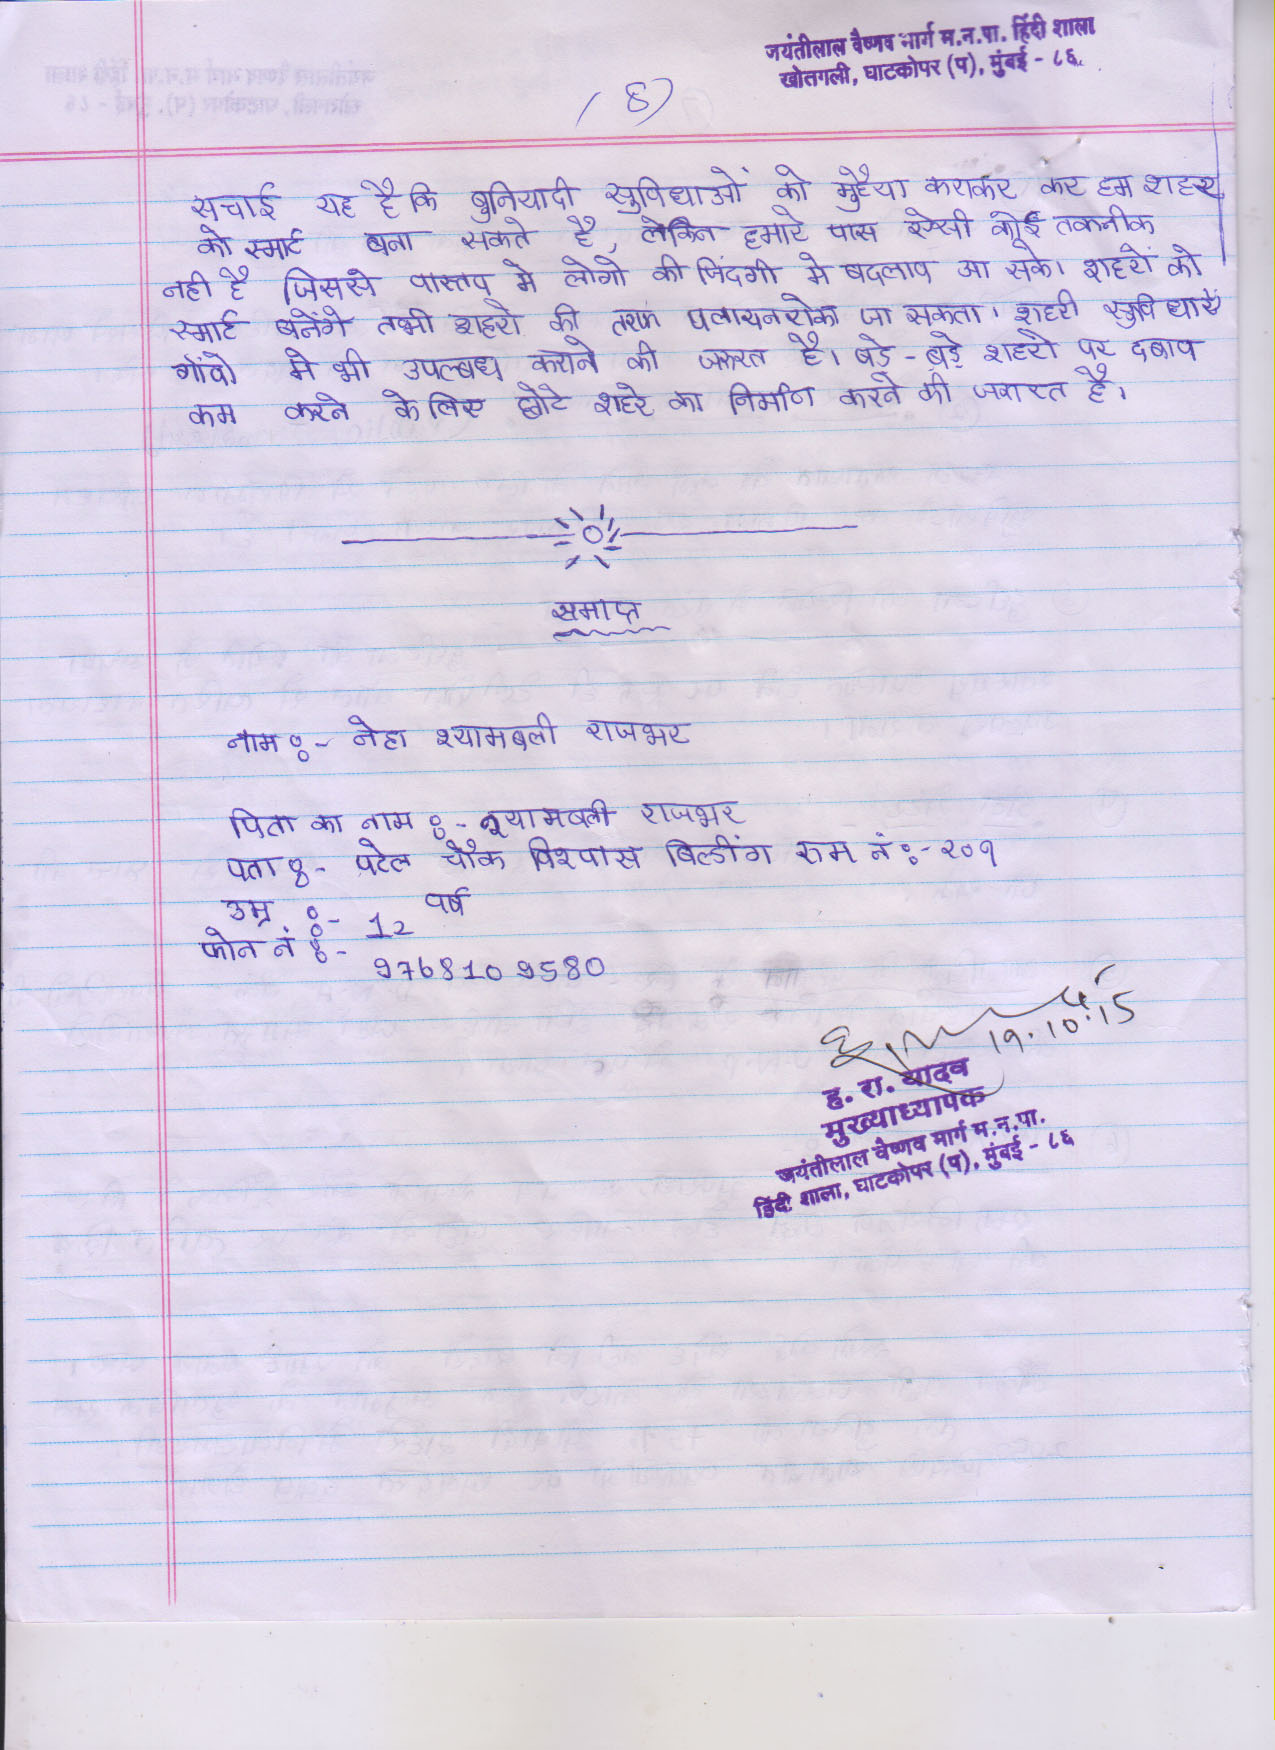 जयंतीलाल वैष्णव मार्ग म.न.पा. हिंदी शाला
खोतगली, घाटकोपर (प), मुंबई - ८६.
(६)
सचाई यह है कि बुनियादी सुविधाओं को मुहैया कराकर कर हम शहर
को स्मार्ट बना सकते है, लेकिन हमारे पास ऐसी कोई तकनीक
नही है जिससे वास्तव मे लोगो की जिंदगी मे बदलाव आ सके। शहरों को
स्मार्ट बनेंगे तभी शहरो की तरफ पलायन रोका जा सकता। शहरी सुविधाएँ
गाँवो मे भी उपल्बध कराने की जरुरत है। बड़े - बड़े शहरो पर दबाव
कम करने के लिए छोटे शहरे का निर्माण करने की जरूरत है।
समाप्त
नाम :- नेहा श्यामबली राजभर
पिता का नाम :- श्यामबली राजभर
पता :- पटेल चौक विश्वास बिल्डींग रुम नं :- २०१
उम्र :- 12 वर्ष
फोन नं :- 9768109580
19.10.15
ह. रा. यादव
मुख्याध्यापक
जयंतीलाल वैष्णव मार्ग म.न.पा.
हिंदी शाला, घाटकोपर (प), मुंबई - ८६